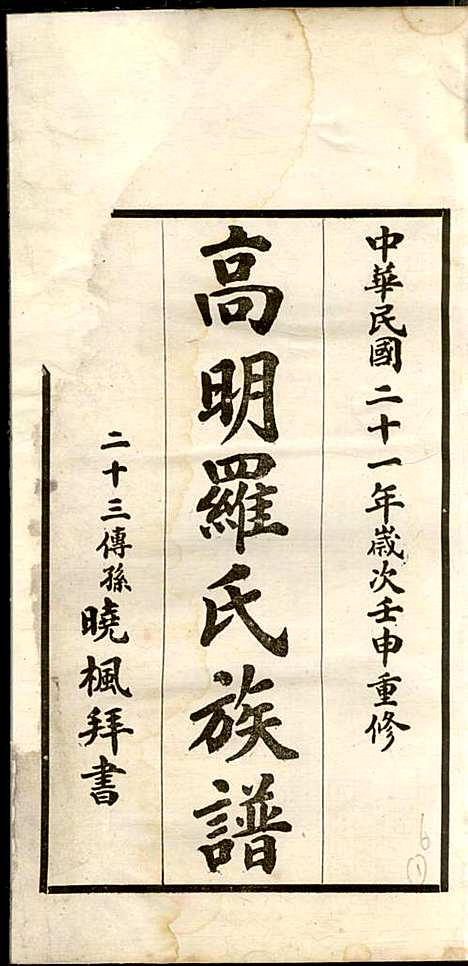 中華民國二十一年歲次壬申重修
高明羅氏族譜
二十三傳孫曉楓拜書
6
(1)